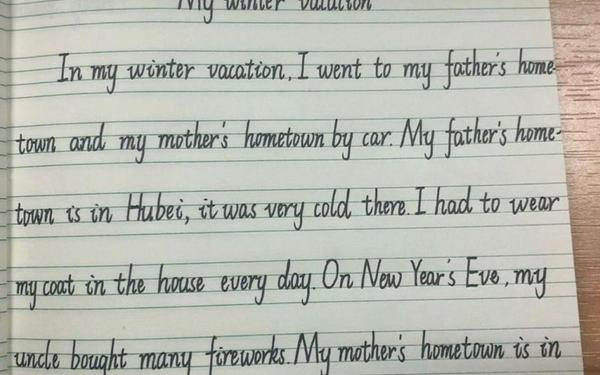 My winter vacation
In my winter vacation, I went to my father's home-
town and my mother's hometown by car. My father's home-
town is in Hubei, it was very cold there. I had to wear
my coat in the house every day. On New Year's Eve, my
uncle bought many fireworks. My mother's hometown is in